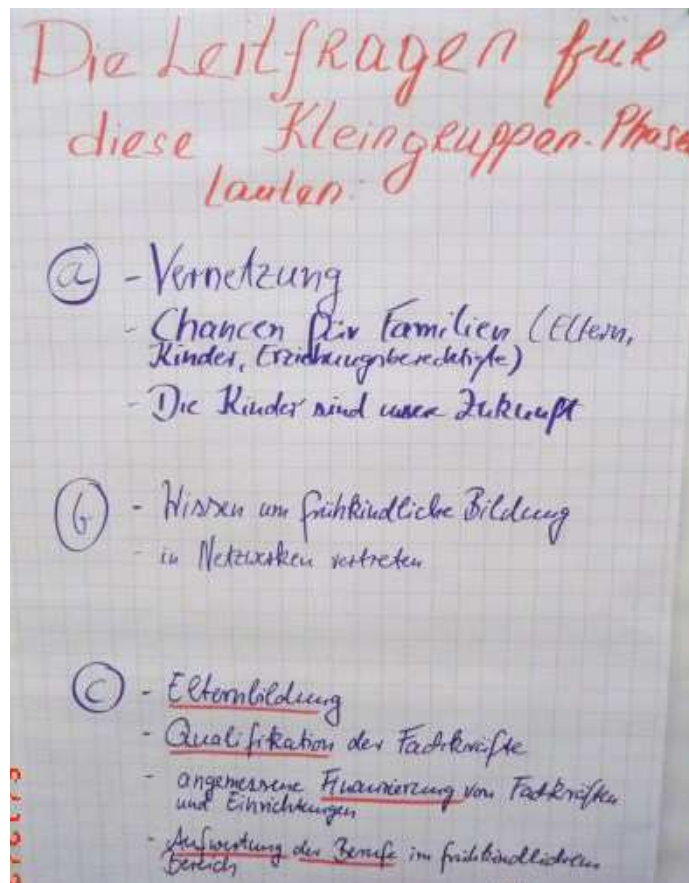 Die Leitfragen für
diese Kleingruppen-Phase
lauten:
a - Vernetzung
- Chancen für Familien (Eltern,
Kinder, Erziehungsberechtigte)
- Die Kinder sind unsere Zukunft
b - Wissen um frühkindliche Bildung
- in Netzwerken vertreten
c - Elternbildung
- Qualifikation der Fachkräfte
- angemessene Finanzierung von Fachkräften
und Einrichtungen
- Aufwertung der Berufe im frühkindlichem
Bereich